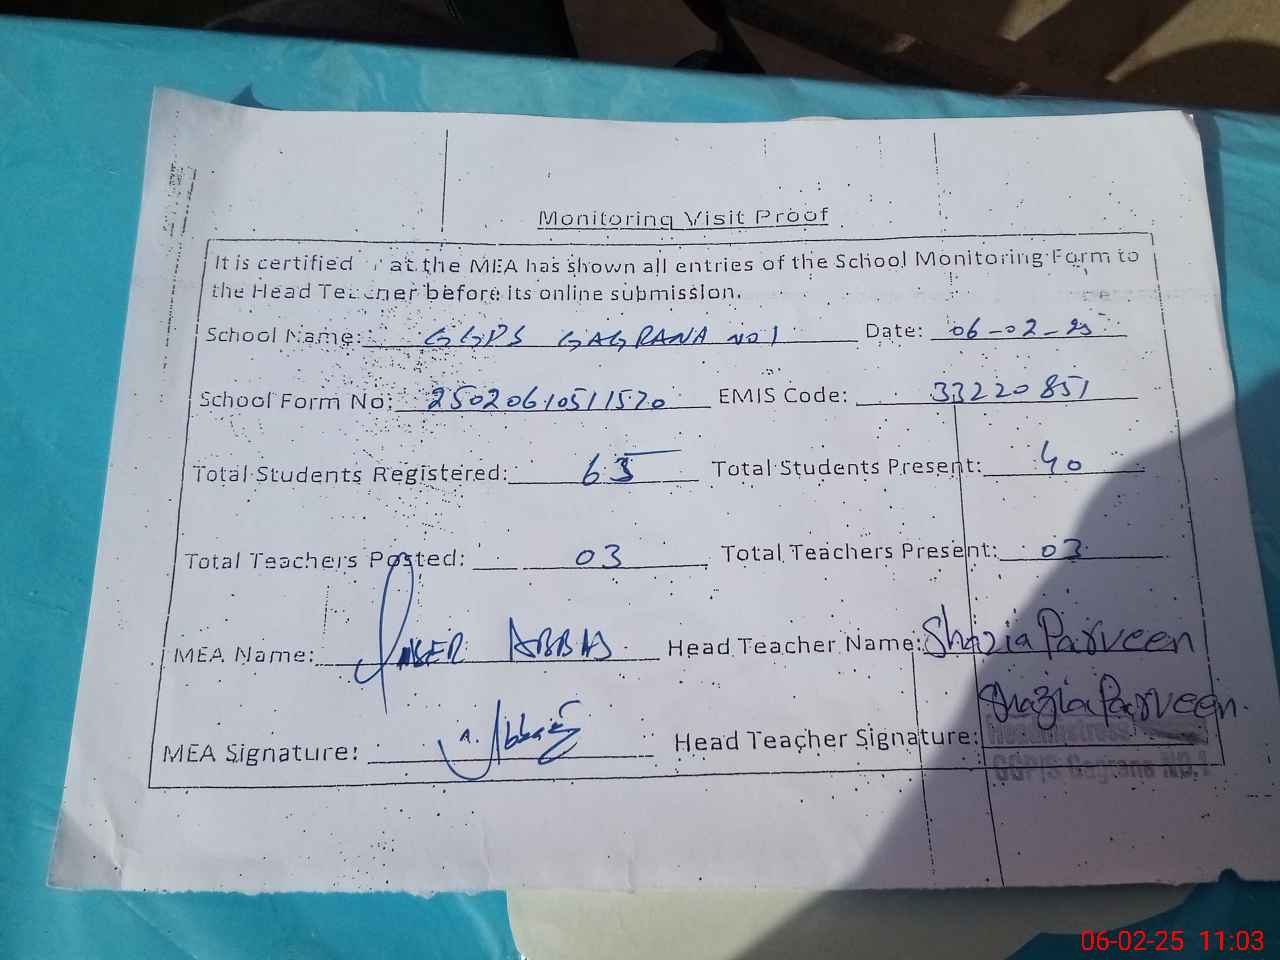 Monitoring Visit Proof
It is certified at the MEA has shown all entries of the School Monitoring Form to
the Head Teacher before its online submission.
School Name: GGPS GAGRANA NO 1 Date: 06-02-25
School Form No: 25020610511570 EMIS Code: 33220851
Total Students Registered: 65 Total Students Present: 40
Total Teachers Posted: 03 Total Teachers Present: 03
MEA Name: ABBAS Head Teacher Name: Shazia Parveen
Shazia Parveen.
MEA Signature: Head Teacher Signature:
Headmistress
GGP/S Gagrana NO.1
06-02-25 11:03